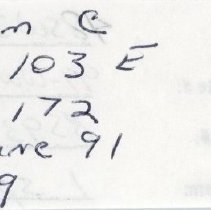 n C
103 E
172
une 91
9